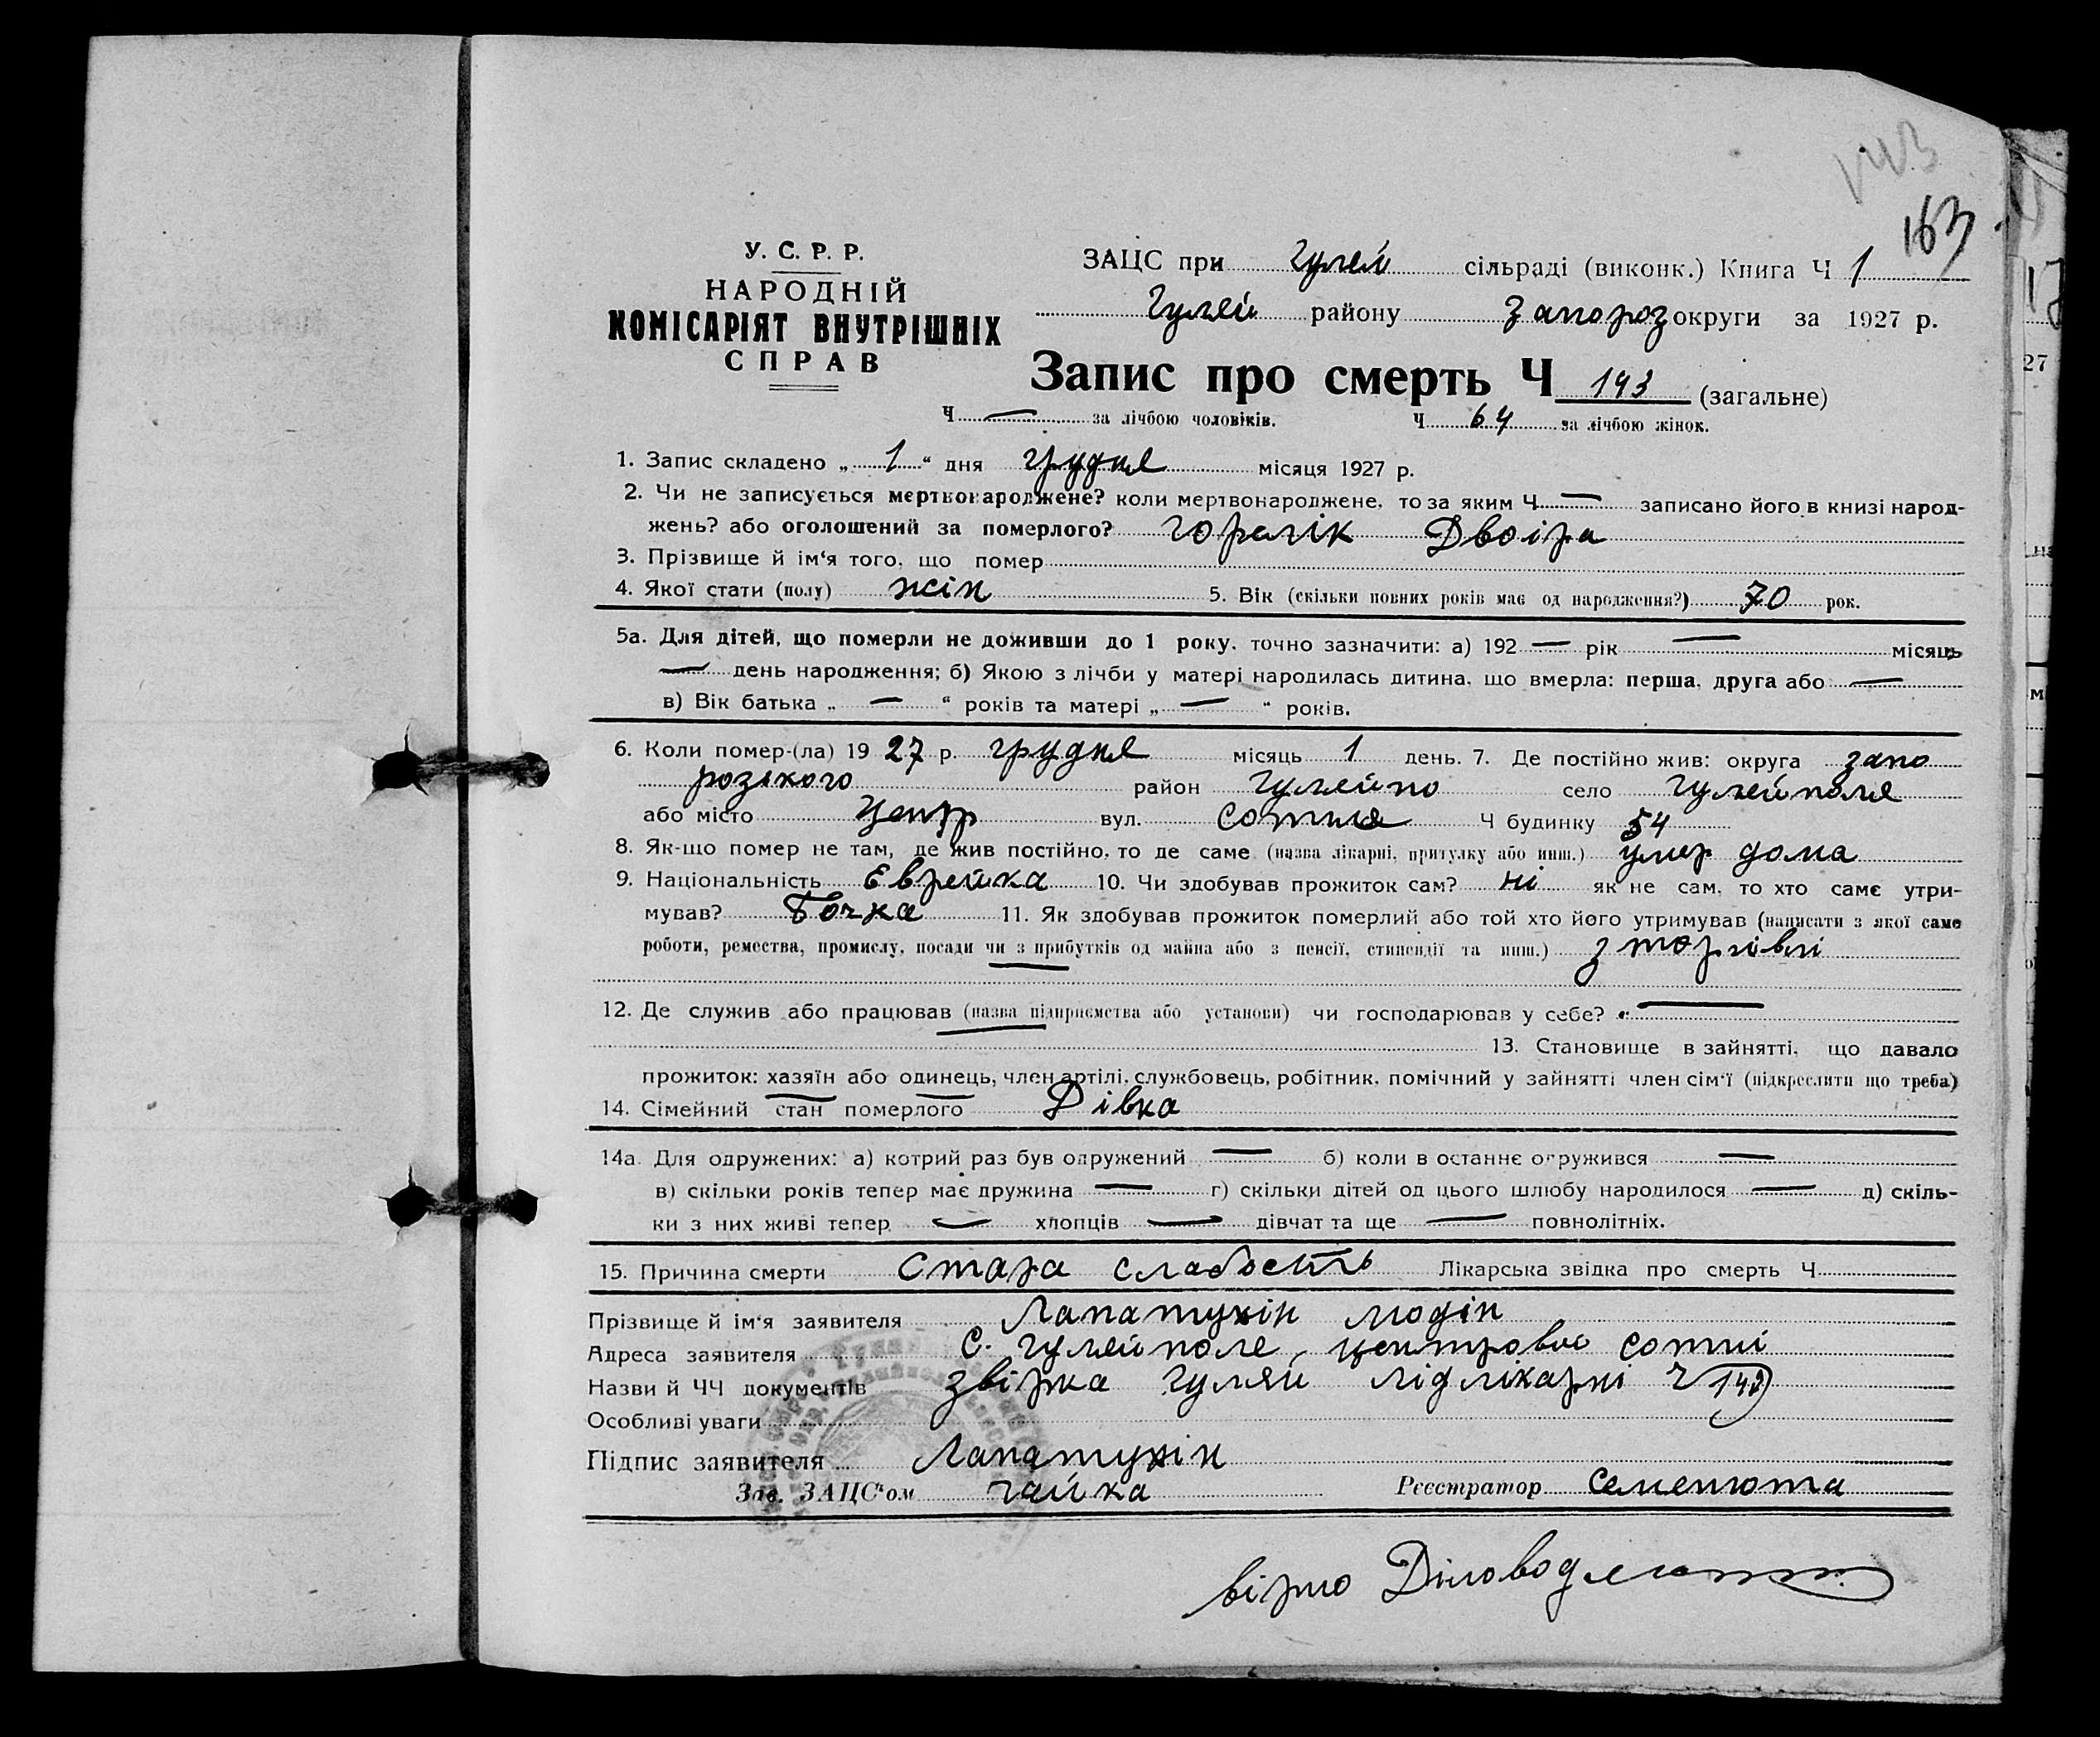 163
У. С. Р. Р.
НАРОДНІЙ
КОМІСАРІЯТ ВНУТРІШНІХ
СПРАВ
ЗАЦС при Гуляй сільраді (виконк.) Книга Ч 1
Гуляй району Запороз округи за 1927 р.
Запис про смерть Ч 143 (загальне)
Ч — за лічбою чоловіків. Ч 64 за лічбою жінок.
1. Запис складено „ 1 “ дня грудня місяця 1927 р.
2. Чи не записується мертвонароджене? коли мертвонароджене, то за яким Ч — записано його в книзі народ-
жень? або оголошений за померлого? Горелік Двоіра
3. Прізвище й ім‘я того, що помер
4. Якої стати (полу) жін 5. Вік (скільки повних років має од народження?) 70 рок.
5а. Для дітей, що померли не доживши до 1 року, точно зазначити: а) 192 — рік — місяць
— день народження; б) Якою з лічби у матері народилась дитина, що вмерла: перша, друга або —
в) Вік батька „ — “ років та матері „ — “ років.
6. Коли помер-(ла) 19 27 р. грудня місяць 1 день. 7. Де постійно жив: округа запо
розького район Гуляйпо село Гуляйполя
або місто Центр вул. сотня Ч будинку 54
8. Як-що помер не там, де жив постійно, то де саме (назва лікарні, притулку або инш.) умер дома
9. Національність Єврейка 10. Чи здобував прожиток сам? ні як не сам, то хто саме утри-
мував? Дочка 11. Як здобував прожиток померлий або той хто його утримував (написати з якої саме
роботи, ремества, промислу, посади чи з прибутків од майна або з пенсії, стипендії та инш.) з торгівлі
12. Де служив або працював (назва підприємства або установи) чи господарював у себе? —
13. Становище в зайнятті, що давало
прожиток: хазяїн або одинець, член артілі, службовець, робітник, помічний у зайнятті член сім‘ї (підкреслити що треба)
14. Сімейний стан померлого Дівка
14а. Для одружених: а) котрий раз був одружений — б) коли в останнє одружився —
в) скільки років тепер має дружина — г) скільки дітей од цього шлюбу народилося — д) скіль-
ки з них живі тепер — хлопців — дівчат та ще — повнолітніх.
15. Причина смерти Стара слабость Лікарська звідка про смерть Ч
Прізвище й ім‘я заявителя Лапатухін
Адреса заявителя С. Гуляйполе, центровоє сотні
Назви й ЧЧ документів Гуляй лікарні Ч 142
Особливі уваги
Підпис заявителя Лапатухін
Зав. ЗАЦС‘ом Чайка Реєстратор Семенюта
вірно Діловод